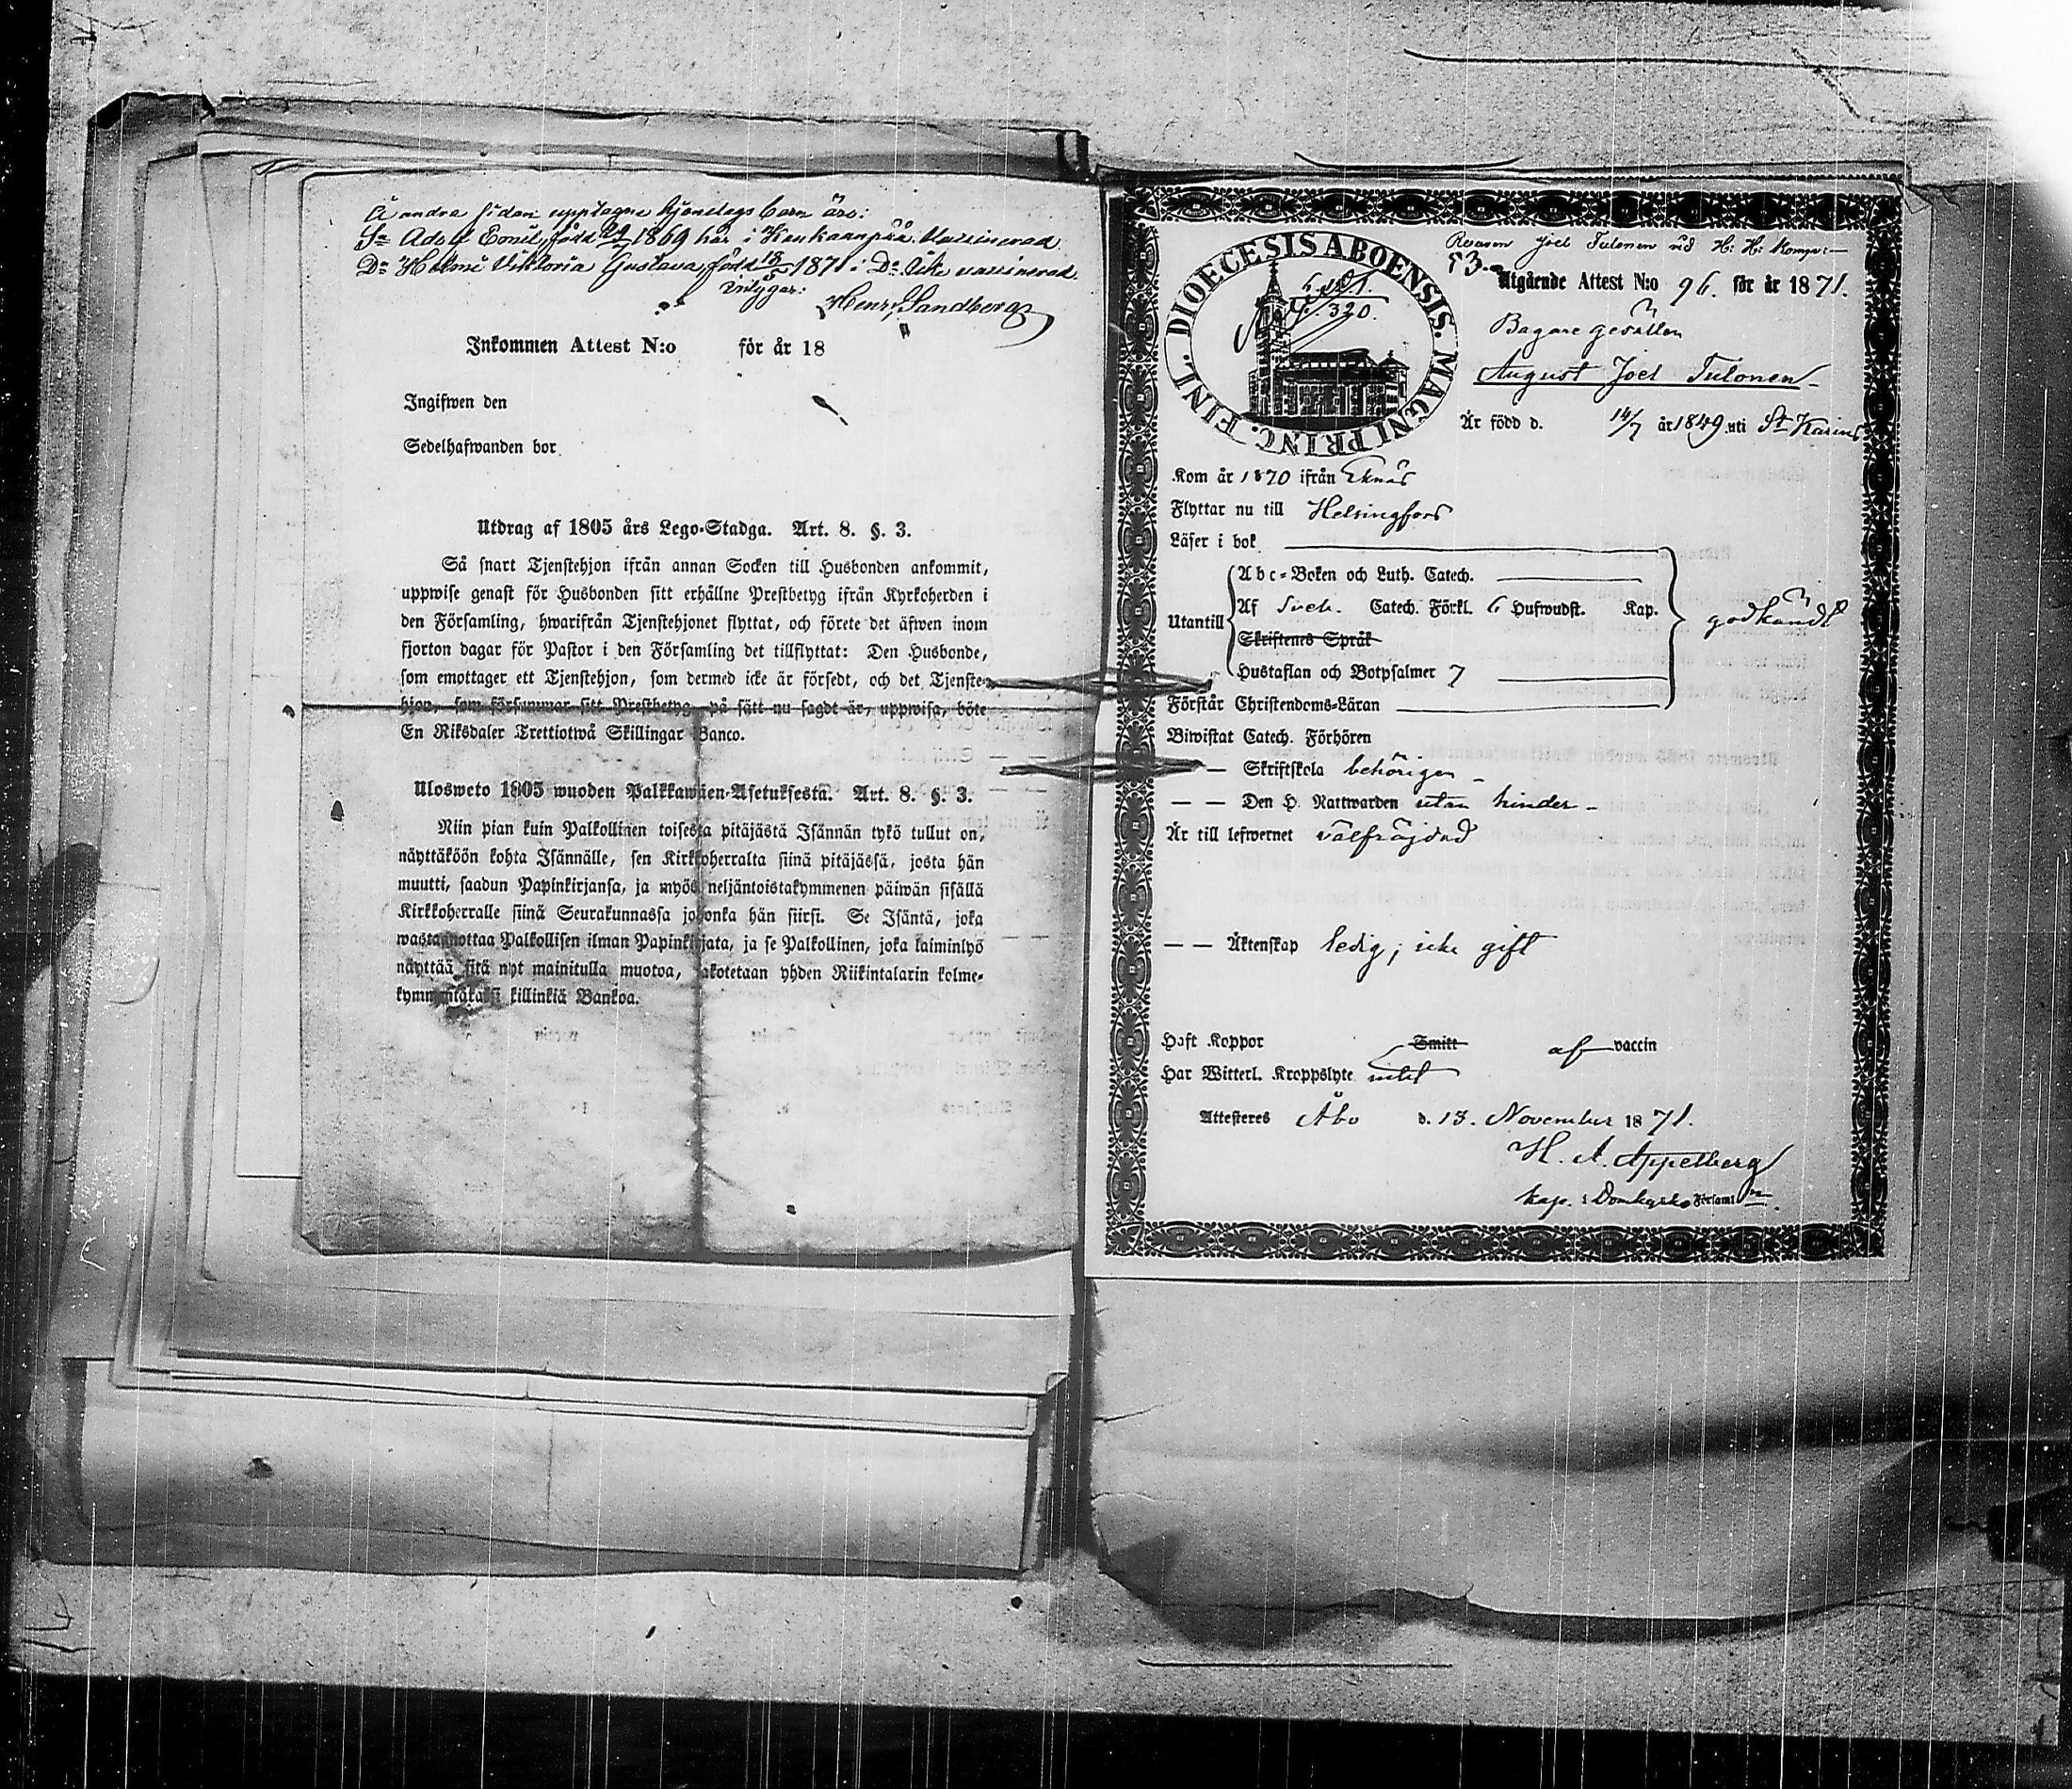 Å andra sidan upptagne hjonelags barn äro:
Sn Adolf Emil, född 29/7 1869 här i Kankaanpää. Vaccinerad
Dn Helmi Viktoria Gustava, född 18/5 1871 i Do Icke vaccinerad
intygar:
Henr. Sandberg
Inkommen Attest N:o för år 18
Ingifwen den
Sedelhafwanden bor
Utdrag af 1805 års Lego-Stadga. Art. 8. §. 3.
Så snart Tjenstehjon ifrån annan Socken till Husbonden ankommit,
uppwise genast för Husbonden sitt erhållne Prestbetyg ifrån Kyrkoherden i
den Församling, hwarifrån Tjenstehjonet flyttat, och förete det äfwen inom
fjorton dagar för Pastor i den Församling det tillflyttat: Den Husbonde,
som emottager ett Tjenstehjon, som dermed icke är försedt, och det Tjenste-
hjon, som försummar sitt Prestbetyg, på sätt nu sagdt är, uppwisa, böte
En Riksdaler Trettiotwå Skillingar Banco.
Ulosweto 1805 wuoden Palkkawäen-Asetuksesta. Art. 8. §. 3.
Niin pian kuin Palkollinen toisesta pitäjästä Isännän tykö tullut on,
näyttäköön kohta Isännälle, sen Kirkkoherralta siinä pitäjässä, josta hän
muutti, saadun Papinkirjansa, ja myös neljäntoistakymmenen päiwän sisällä
Kirkkoherralle siinä Seurakunnassa johonka hän siirsi. Se Isäntä, joka
wastaanottaa Palkollisen ilman Papinkirjata, ja se Palkollinen, joka laiminlyö
näyttää sitä nyt mainitulla muotoa, sakotetaan yhden Riikintalarin kolme-
kymmentäkaksi killinkiä Bankoa.
DIOECESIS ABOENSIS. MAGNI PRINC. FINL.
320.
Joel Tulonen vid H: H: Komp:
53.
Utgående Attest N:o 96. för år 1871.
Bagare gesällen
August Joel Tulonen
Är född d. 14/7 år 1849 uti St Karins
Kom år 1870 ifrån Eknäs
Flyttar nu till Helsingfors
Läser i bok
Abc-Boken och Luth. Catech.
Utantill Af Sveb. Catech. Förkl. 6 Hufwudst. Kap. godkändt
Skriftenes Språk
Hustaflan och Botpsalmer 7
Förstår Christendoms-Läran
Biwistat Catech. Förhören
— Skriftskola behörigen
— — Den H. Nattwarden utan hinder
Är till lefwernet välfräjdad
— — Äktenskap ledig; icke gift
Haft Koppor Smitt af vaccin
Har Witterl. Kroppslyte intet
Attesteres Åbo d. 13. November 1871.
H. A. Appelberg
kap. i Domkyrko Församl